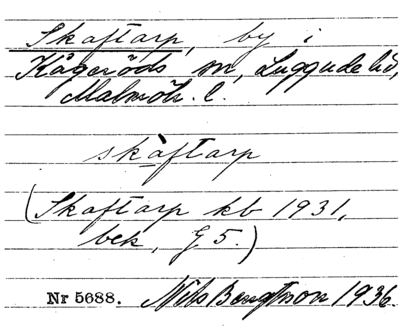 Skaftarp, by i
Kågeröds sn, Luggude hd,
Malmöh. l.
skàftarp
(Skaftarp kb 1931,
bek, g 5.)
Nr 5688. Nils Bengtsson 1936.